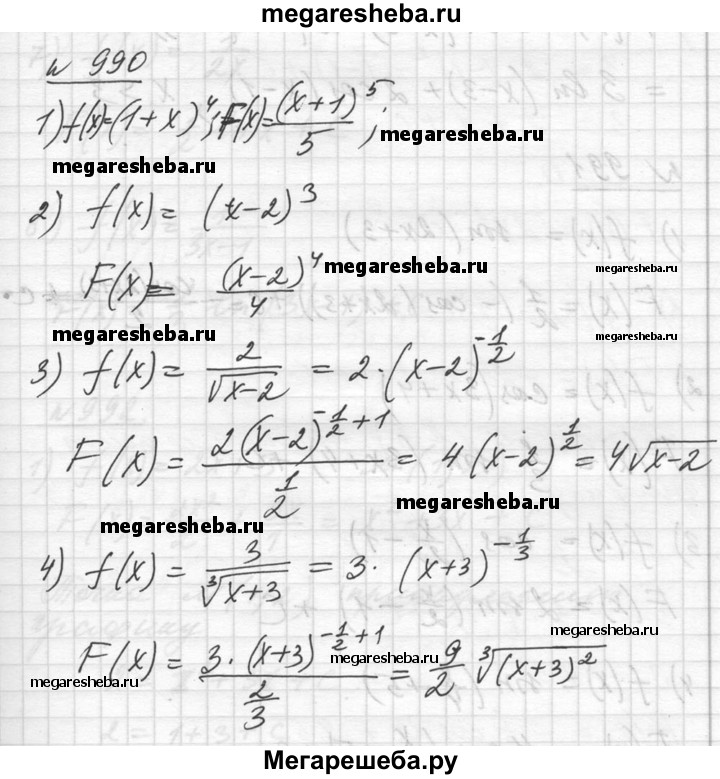 megaresheba.ru
№ 990
1) f(x)=(1+x)^4; F(x)=(x+1)^5/5;
megaresheba.ru
2) f(x)= (x-2)^3
megaresheba.ru megaresheba.ru
F(x)= (x-2)^4/4
megaresheba.ru megaresheba.ru
3) f(x)= 2/√(x-2) = 2·(x-2)^(-1/2)
F(x)= 2(x-2)^(-1/2+1) / (1/2) = 4(x-2)^(1/2) = 4√(x-2)
megaresheba.ru
megaresheba.ru
4) f(x)= 3/∛(x+3) = 3·(x+3)^(-1/3)
megaresheba.ru
F(x)= 3·(x+3)^(-1/2+1) / (2/3) = 9/2 ∛((x+3)^2)
megaresheba.ru megaresheba.ru
Мегарешеба.ру